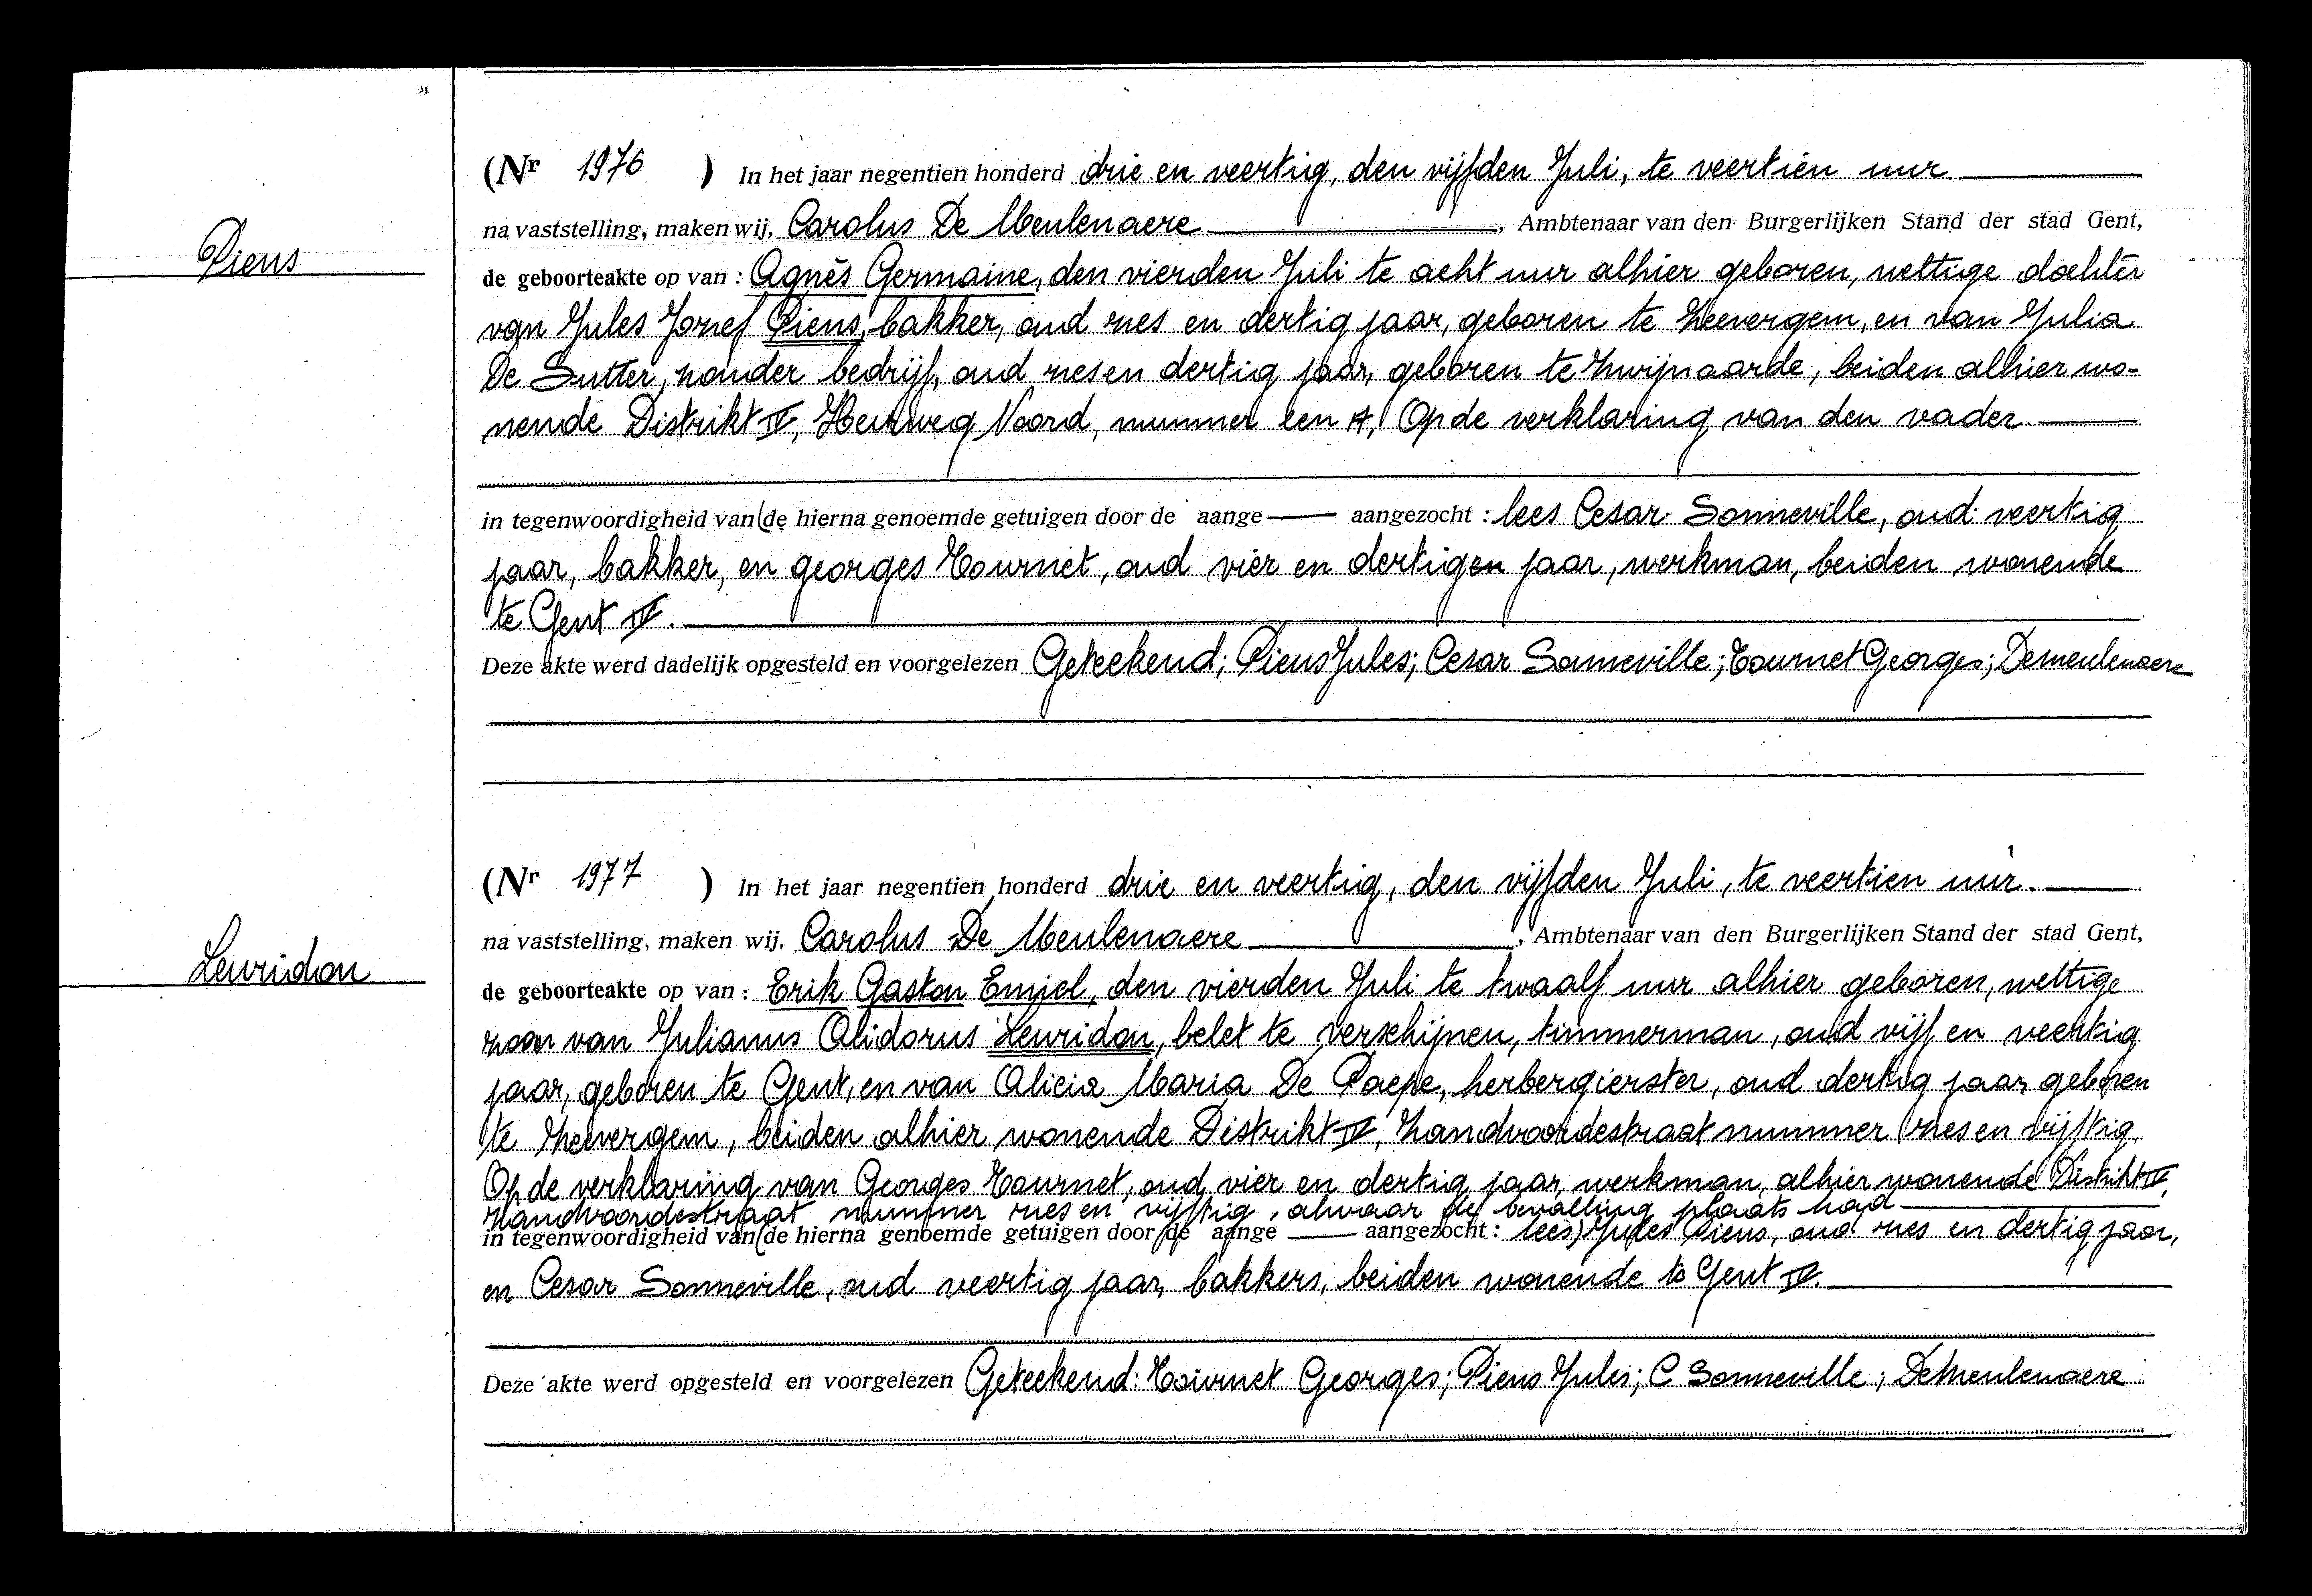 Piens
(Nr 1976 ) In het jaar negentien honderd drie en veertig, den vijfden Juli, te veertien uur
na vaststelling, maken wij, Carolus De Meulenaere , Ambtenaar van den Burgerlijken Stand der stad Gent,
de geboorteakte op van : Agnès Germaine, den vierden Juli te acht uur alhier geboren, wettige dochter
van Jules Jozef Piens, bakker, oud zes en dertig jaar, geboren te Zevergem, en van Julia
De Sutter, zonder bedrijf, oud zes en dertig jaar, geboren te Zwijnaarde, beiden alhier wo-
nende Distrikt IV, Heirweg Noord, nummer een A, Op de verklaring van den vader
in tegenwoordigheid van (de hierna genoemde getuigen door de aange aangezocht : lees Cesar Sonneville, oud veertig
jaar, bakker, en georges Tournet, oud vier en dertigen jaar, werkman, beiden wonende
te Gent IV.
Deze akte werd dadelijk opgesteld en voorgelezen Geteekend; Piens Jules; Cesar Sonneville; Tournet Georges; Demeulenaere
Leuridon
(Nr 1977 ) In het jaar negentien honderd drie en veertig, den vijfden Juli, te veertien uur.
na vaststelling, maken wij, Carolus De Meulenaere , Ambtenaar van den Burgerlijken Stand der stad Gent,
de geboorteakte op van : Erik Gaston Emiel, den vierden Juli te twaalf uur alhier geboren, wettige
zoon van Julianus Alidorus Leuridon, belet te verschijnen, timmerman, oud vijf en veertig
jaar, geboren te Gent, en van Alicia Maria De Paepe, herbergierster, oud dertig jaar, geboren
te Zevergem, beiden alhier wonende Distrikt IV, Zandvoordestraat nummer zes en vijftig.
Op de verklaring van Georges Tournet, oud vier en dertig jaar, werkman, alhier wonende Distrikt IV,
Zandvoordestraat nummer zes en vijftig, alwaar de bevalling plaats had
in tegenwoordigheid van (de hierna genoemde getuigen door de aange aangezocht : lees) Jules Piens, oud zes en dertig jaar,
en Cesar Sonneville, oud veertig jaar, bakkers, beiden wonende te Gent IV.
Deze akte werd opgesteld en voorgelezen Geteekend: Tournet Georges; Piens Jules; C Sonneville; DeMeulenaere